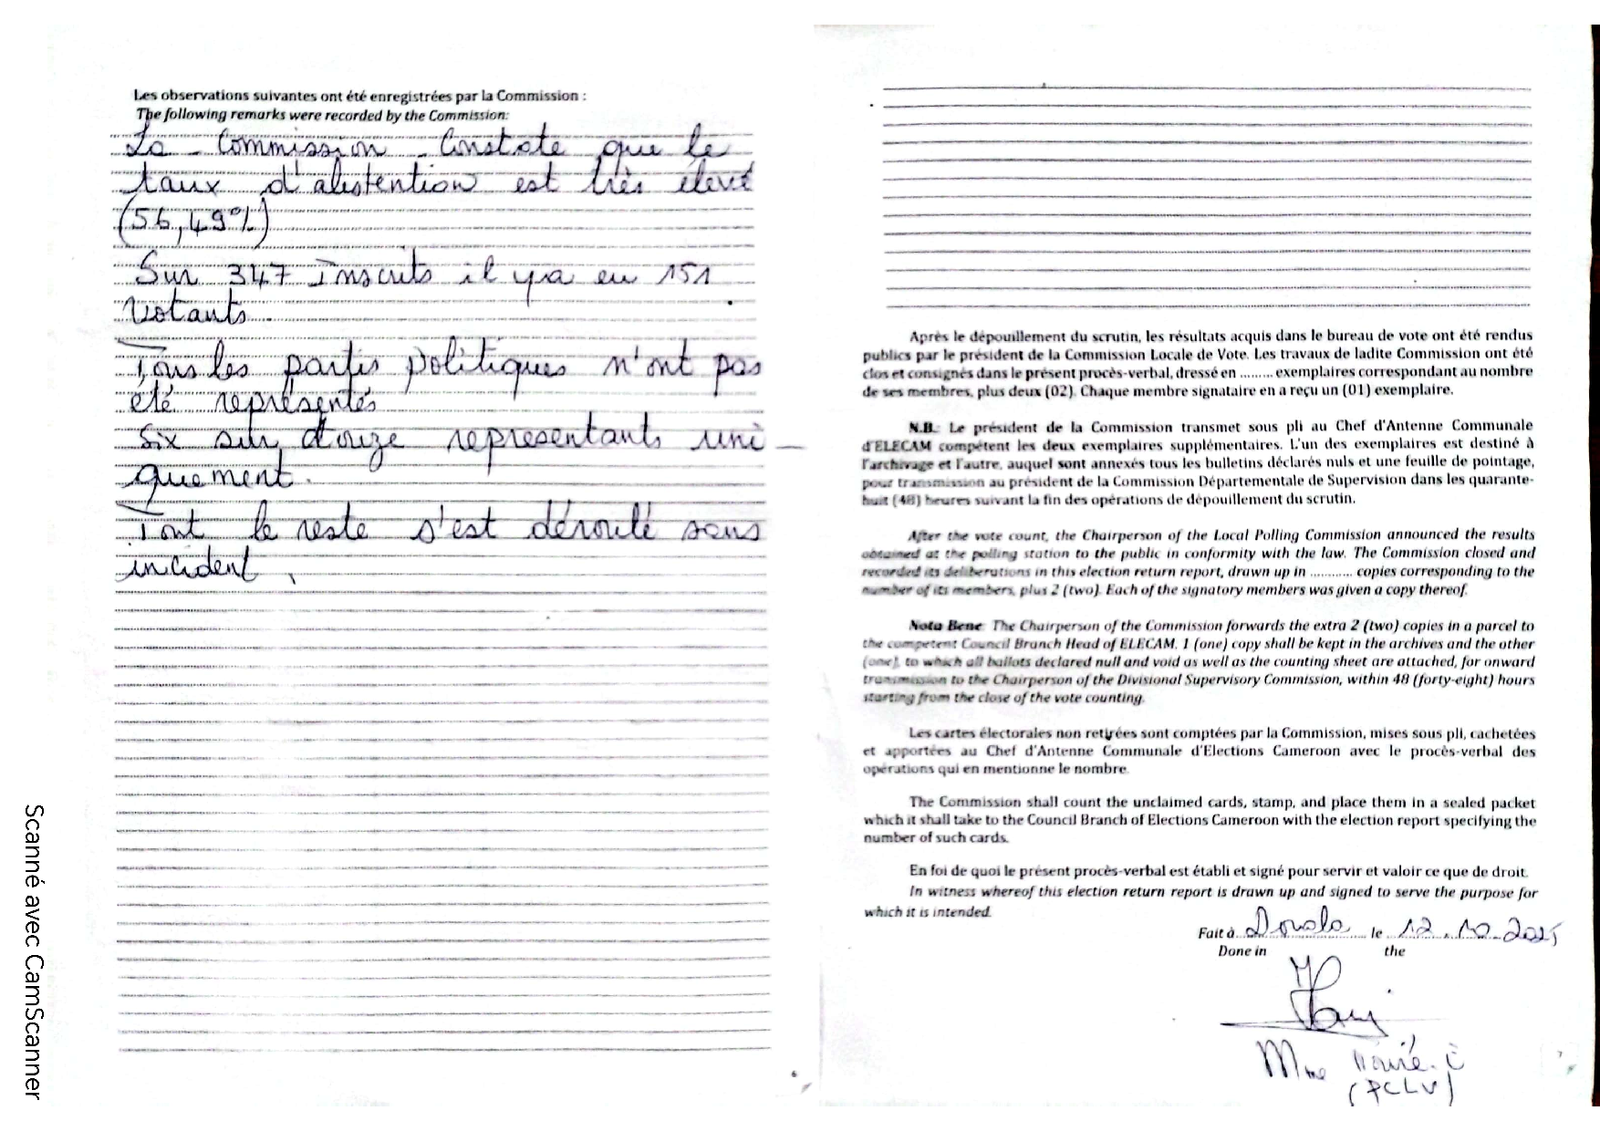 Les observations suivantes ont été enregistrées par la Commission :
The following remarks were recorded by the Commission:
La Commission Constate que le
taux d'abstention est très élevé
(56,49%)
Sur 347 Inscrits il y a eu 151
Votants
Tous les partis politiques n'ont pas
été représentés
Six sur douze representants uni-
quement.
Tout le reste s'est déroulé sans
incident.
6
Après le dépouillement du scrutin, les résultats acquis dans le bureau de vote ont été rendus
publics par le président de la Commission Locale de Vote. Les travaux de ladite Commission ont été
clos et consignés dans le présent procès-verbal, dressé en ......... exemplaires correspondant au nombre
de ses membres, plus deux (02). Chaque membre signataire en a reçu un (01) exemplaire.
N.B.: Le président de la Commission transmet sous pli au Chef d'Antenne Communale
d'ELECAM compétent les deux exemplaires supplémentaires. L'un des exemplaires est destiné à
l'archivage et l'autre, auquel sont annexés tous les bulletins déclarés nuls et une feuille de pointage,
pour transmission au président de la Commission Départementale de Supervision dans les quarante-
huit (48) heures suivant la fin des opérations de dépouillement du scrutin.
After the vote count, the Chairperson of the Local Polling Commission announced the results
obtained at the polling station to the public in conformity with the law. The Commission closed and
recorded its deliberations in this election return report, drawn up in ........... copies corresponding to the
number of its members, plus 2 (two). Each of the signatory members was given a copy thereof.
Nota Bene: The Chairperson of the Commission forwards the extra 2 (two) copies in a parcel to
the competent Council Branch Head of ELECAM. 1 (one) copy shall be kept in the archives and the other
(one), to which all ballots declared null and void as well as the counting sheet are attached, for onward
transmission to the Chairperson of the Divisional Supervisory Commission, within 48 (forty-eight) hours
starting from the close of the vote counting.
Les cartes électorales non retirées sont comptées par la Commission, mises sous pli, cachetées
et apportées au Chef d'Antenne Communale d'Elections Cameroon avec le procès-verbal des
opérations qui en mentionne le nombre.
The Commission shall count the unclaimed cards, stamp, and place them in a sealed packet
which it shall take to the Council Branch of Elections Cameroon with the election report specifying the
number of such cards.
En foi de quoi le présent procès-verbal est établi et signé pour servir et valoir ce que de droit.
In witness whereof this election return report is drawn up and signed to serve the purpose for
which it is intended.
Fait à Douala le 12.10.2025
Done in the
Mme
(PCLV)
7
Scanné avec CamScanner